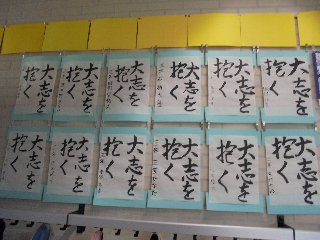 大志を
抱く
大志を
抱く
大志を
抱く
大志を
抱く
大志を
抱く
大志を
抱く
大志を
抱く
大志を
抱く
大志を
抱く
大志を
抱く
大志を
抱く
大志を
抱く